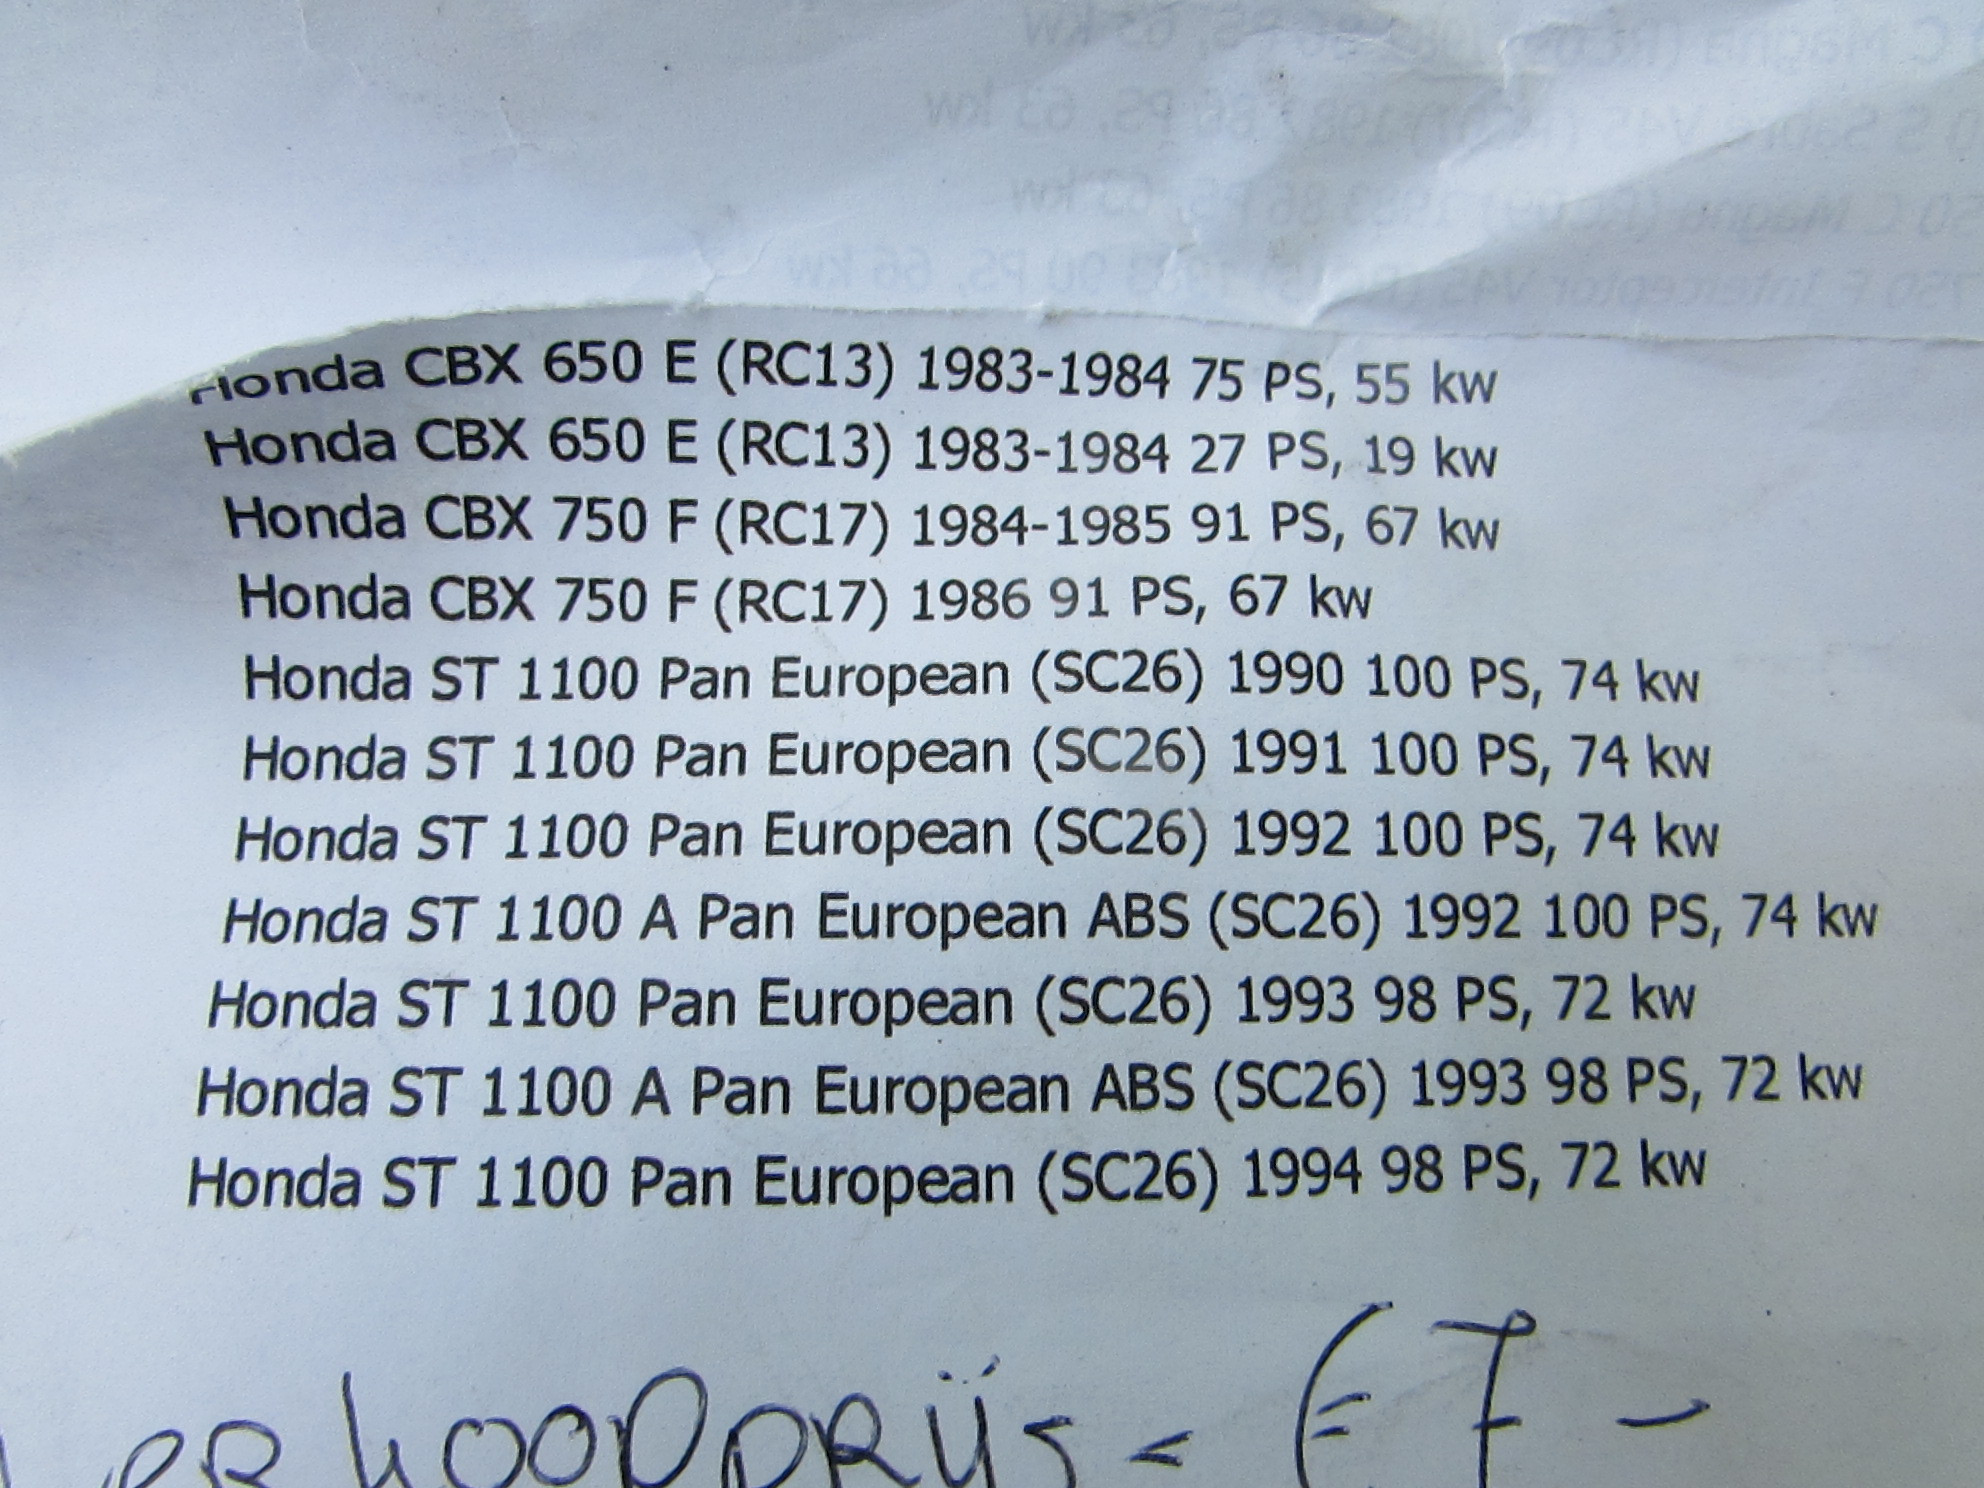 C Magna
S Sabre V45 (RC07) 1982 86 PS, 63 kw
C Magna (RC09) 1983 86 PS, 63 kw
750 F Interceptor V45 1983 90 PS, 66 kw
Honda CBX 650 E (RC13) 1983-1984 75 PS, 55 kw
Honda CBX 650 E (RC13) 1983-1984 27 PS, 19 kw
Honda CBX 750 F (RC17) 1984-1985 91 PS, 67 kw
Honda CBX 750 F (RC17) 1986 91 PS, 67 kw
Honda ST 1100 Pan European (SC26) 1990 100 PS, 74 kw
Honda ST 1100 Pan European (SC26) 1991 100 PS, 74 kw
Honda ST 1100 Pan European (SC26) 1992 100 PS, 74 kw
Honda ST 1100 A Pan European ABS (SC26) 1992 100 PS, 74 kw
Honda ST 1100 Pan European (SC26) 1993 98 PS, 72 kw
Honda ST 1100 A Pan European ABS (SC26) 1993 98 PS, 72 kw
Honda ST 1100 Pan European (SC26) 1994 98 PS, 72 kw
€ 7 -